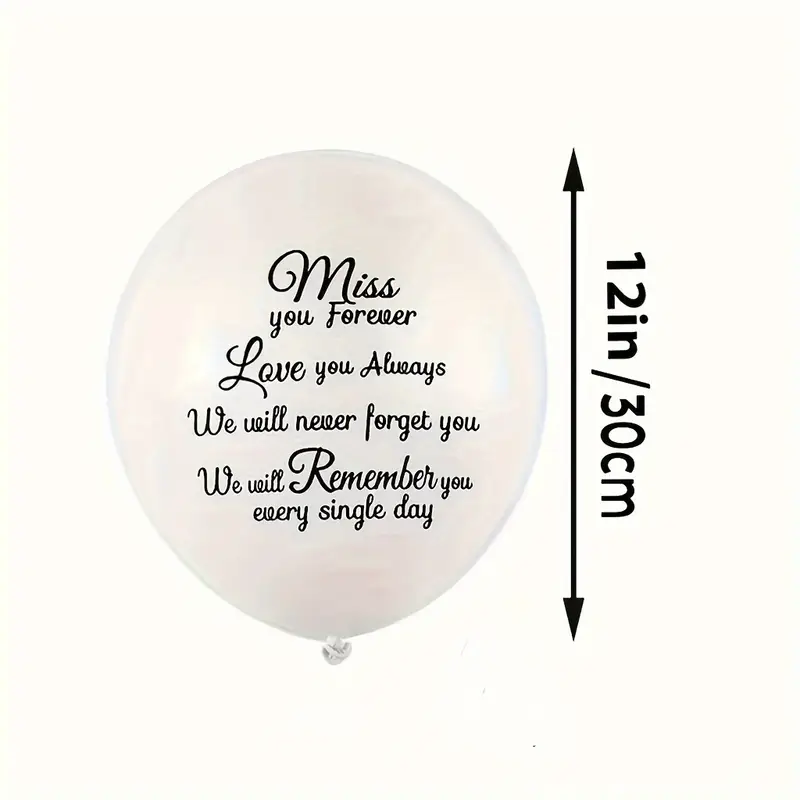 Miss
you Forever
Love you Always
We will never forget you
We will Remember you
every single day
12in/30cm